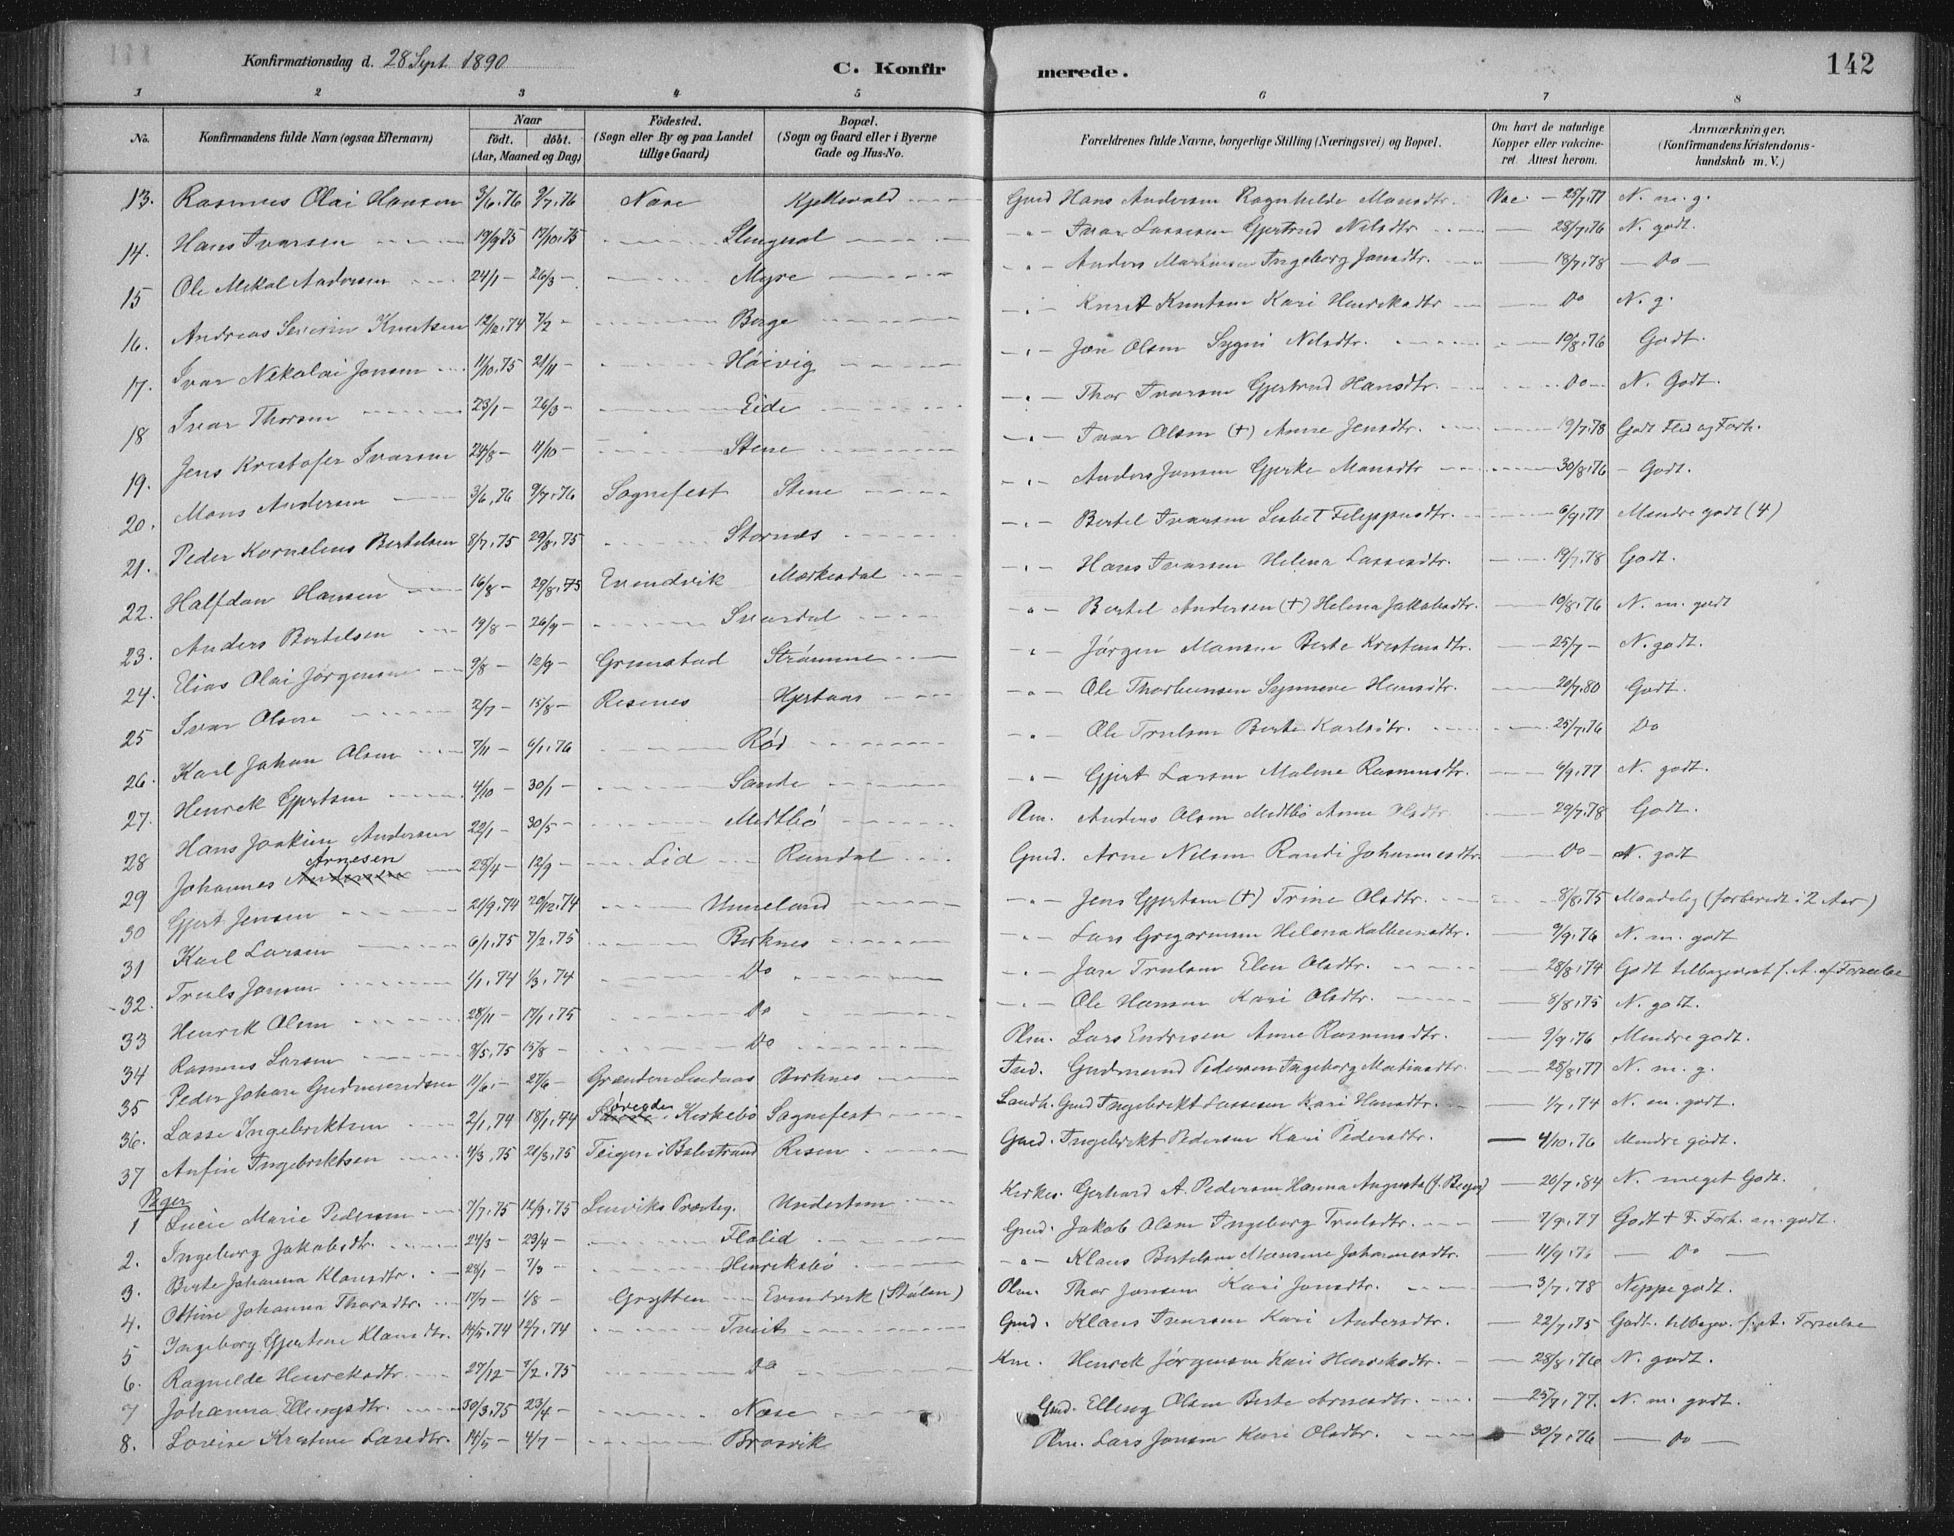 Konfirmationsdag d. 28 Sept. 1890
C. Konfirmerede.
142
1 2 3 4 5 6 7 8
No. Konfirmandens fulde Navn (ogsaa Efternavn) Naar født. døbt. (Aar, Maaned og Dag) Fødested. (Sogn eller By og paa Landet tillige Gaard) Bopæl. (Sogn og Gaard eller i Byerne Gade og Hus-No. Forældrenes fulde Navne, borgerlige Stilling (Næringsvei) og Bopæl. Om havt de naturlige Kopper eller vakcineret. Attest herom. Anmærkninger. (Konfirmandens Kristendomskundskab m. V.)
13. Rasmus Olai Hansen 3/6.76 9/7.76 Næse Kjellevold Gmd Hans Andersen Ragnhilde Monsdtr. Vac. 25/7.77 N. m. g.
14. Hans Ivarsen 19/9.75 17/10.75 Slengesol Ivar Lassesen Gjertrud Nilsdtr 28/7.76 N. godt.
15 Ole Mikal Andersen 24/1 - 26/3 - Myre Anders Martinsen Ingeborg Jonsdtr. 18/7.78 Do
16. Andreas Severin Knutsen 12/12.74 7/2 - Berge Knut Knutsen Kari Henriksdtr Do N. g.
17. Ivar Nikolai Jonsen 11/10.75 21/11 Høivig Jon Olsen Sygni Nilsdtr. 19/8.76 Godt.
18 Ivar Thorsen 23/1 - 26/3 - Eide Thor Ivarsen Gjertrud Hansdtr. Do N. Godt.
19. Jens Kristofer Ivarsen 24/8 - 11/10 - Stene Ivar Olsen (+) Anne Jensdtr. 19/7.78 Godt Flid og Forh.
20. Mons Andersen 3/6.76 9/7.76 Sognefest Stene Anders Jonsen Gjerke Monsdtr 30/8.76 Godt.
21. Peder Kornelius Bertelsen 8/7.75 29/8.75 Stornæs Bertel Ivarsen Lisbet Filippusdtr. 6/9.77 Mindre godt (4)
22. Halfdan Hansen 16/8 - 29/8.75 Evendvik Mærkesdal Hans Ivarsen Helena Lassesdtr. 19/7.78 Godt.
23. Anders Bertelsen 19/8 - 26/9 - Svardal Bertel Andersen (+) Helena Jakobsdtr. 10/8.76 N. m. godt
24. Elias Olai Jørgensen 9/8 - 12/9 - Grimstad Strømme Jørgen Monsen Berte Kristensdtr. 25/7 - N. godt.
25 Ivar Olsen 2/7 - 15/8 - Risenes Hjertaas Ole Thorbensen Synneve Hansdtr. 20/7.80 Godt.
26. Karl Johan Olsen 7/11 - 6/1.76 Rød Ole Trulsen Berte Karlsdtr. 25/7.76 Do
27. Henrik Gjertsen 4/10 - 30/1 - Sande Gjert Larsen Malene Rasmusdtr. 6/9.77 N. godt.
28 Hans Joakim Andersen 22/1 - 30/5 - Midtbø Plm. Anders Olsen Midtbø Anne Olsdtr 29/7.78 Godt.
29 Johannes Arnesen 28/4 - 12/9 Lid Rundal Gmd. Arne Nilsen Randi Johannesdtr Do N. godt
30 Gjert Jensen 21/9.74 20/12.74 Unneland Jens Gjertsen (+) Trine Olsdtr. 8/8.75 Maadelig (forberedt i 2 Aar)
31 Karl Larsen 6/1.75 7/2.75 Birknes Lars Gregoriusen Helena Kolbeinsdtr. 9/9.76 N. m. godt
32. Truls Jonsen 1/1.74 1/3.74 Do Jon Trulsen Elen Olsdtr. 28/8.74 Godt tilbagevist f. A. af Forseelse
33 Henrik Olsen 28/11 - 17/1.75 Do Ole Hansen Kari Olsdtr. 8/8.75 N. godt.
34 Rasmus Larsen 9/5.75 15/8 - Do Plm. Lars Endresen Anne Rasmusdtr. 9/9.76 Mindre godt.
35 Peder Johan Gudmundsen 11/6 - 27/6 - Grænden Lindaas Birknes Ind. Gudmund Pedersen Ingeborg Martinsdtr. 28/8.77 N. m. g.
36. Lasse Ingebriktsen 2/1.74 18/1.74 Søreide Kirkebø Sognefest Landh. Gmd Ingebrikt Lassesen Kari Hansdtr. 1/7.74 N. m. godt.
37 Anfin Ingebriktsen 4/3.75 21/3.75 Teigen i Balestrand Risen Gmd. Ingebrikt Pedersen Kari Pedersdtr. 4/10.76 Mindre godt.
Piger
1 Lucie Marie Pedersen 7/7.75 12/9.75 Lenviks Præsteg. Undertun Kirkes. Gerhard A. Pedersen Hanna Augusta 20/7.84 N. meget Godt.
2. Ingeborg Jakobsdtr. 24/3 - 23/4 - Flolid Gmd. Jakob Olsen Ingeborg Trulsdtr. 7/9.77 Godt + F. Forh. m. godt.
3. Berte Johanna Klausdtr. 28/1 - 7/3 - Henriksbø Klaus Bertelsen Monsine Johannesdtr. 11/9.76 Do
4. Ottine Johanna Thorsdtr. 17/7 - 1/8 - Grytten Evindvik (Stølen) Plm. Thor Jonsen Kari Jonsdtr. 3/7.78 Neppe godt.
5 Ingeborg Gjertine Klausdtr. 14/5.74 12/7.74 Tveit Gmd. Klaus Ivarsen Kari Andersdtr. 22/7.75 Godt. tilbagev. f. A. Forseelse
6. Ragnilde Henriksdtr 27/12 - 7/2.75 Do Km. Henrik Jørgensen Kari Henriksdtr. 28/8.76 N. godt.
7 Johanna Ellingsdtr. 30/3.75 23/4 - Næse Gmd. Elling Olsen Berte Arnesdtr 25/7.77. N. m. godt.
8. Lovise Kristine Larsdtr. 14/5 - 4/7 - Brosvik Plm. Lars Jonsen Kari Olsdtr. 30/7.76 Do